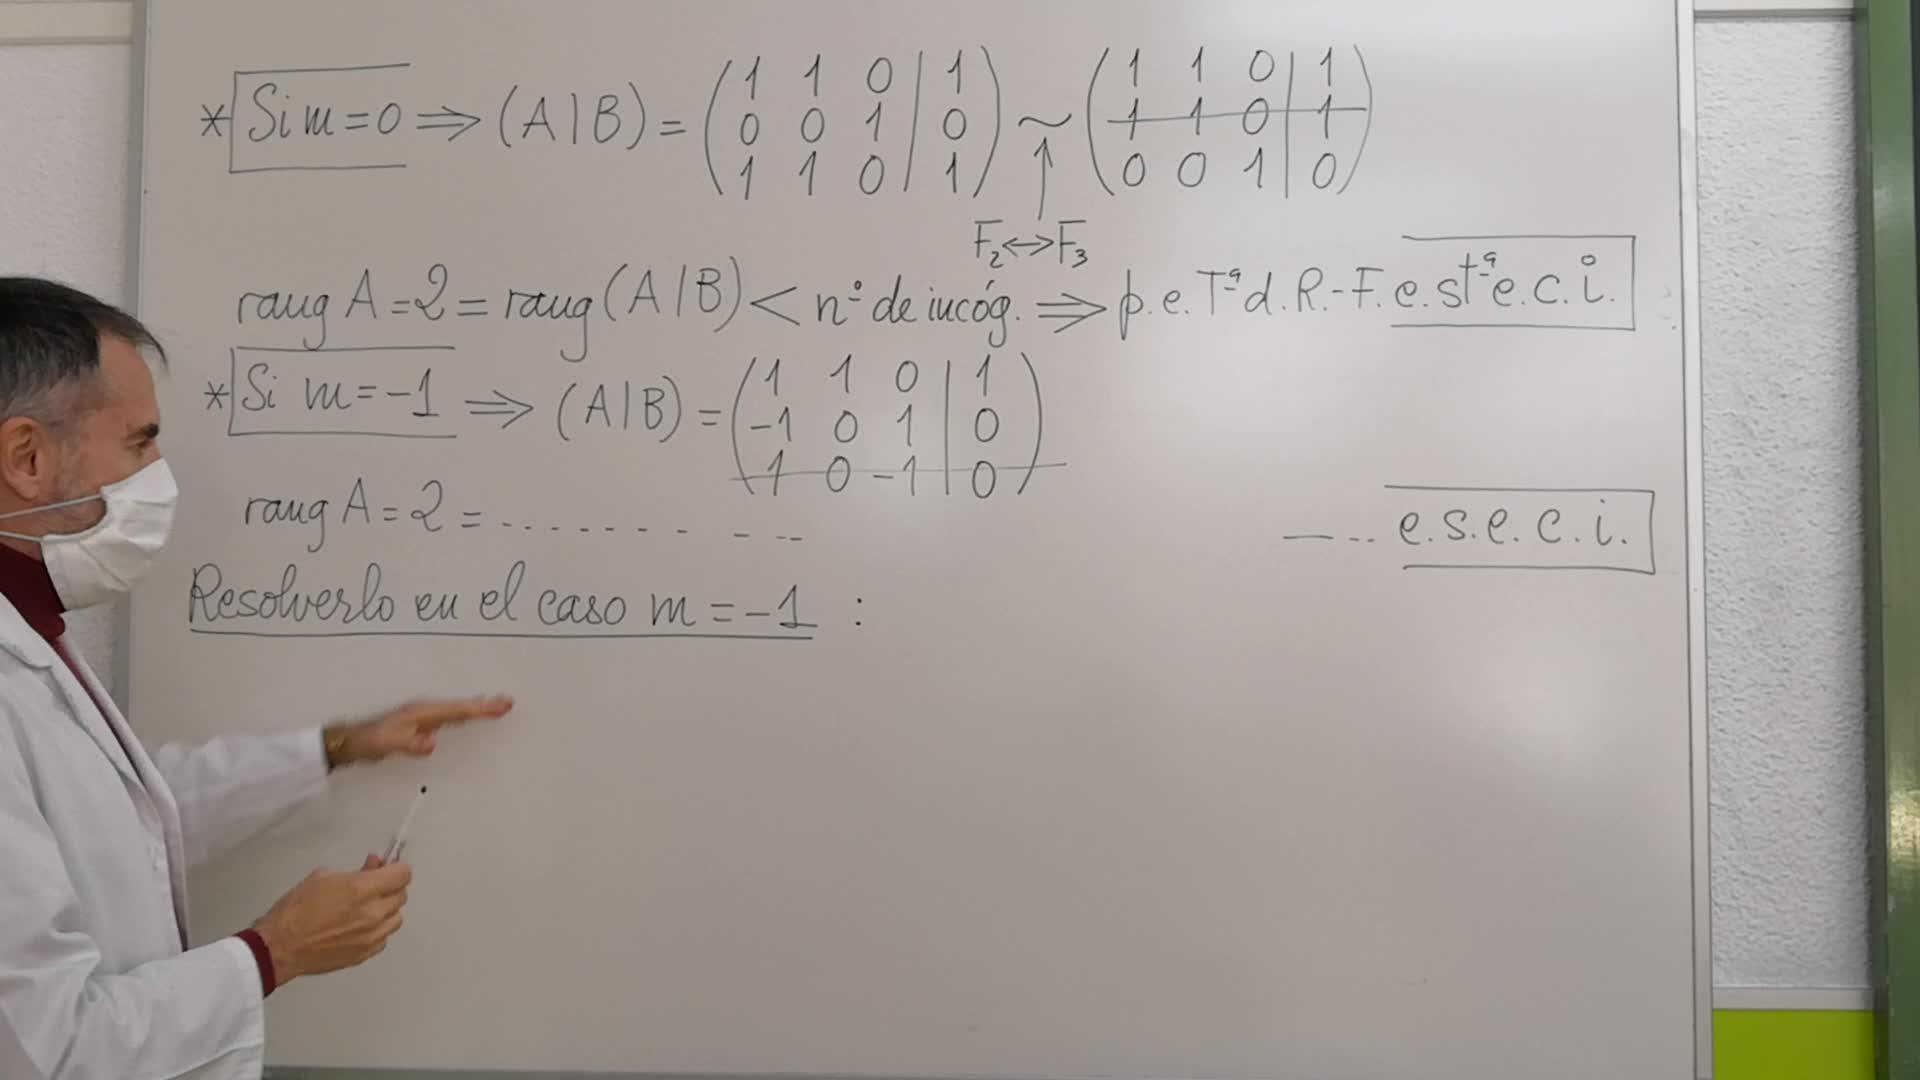 * Si m=0 ⇒ (A|B) = (1 1 0 | 1; 0 0 1 | 0; 1 1 0 | 1) ~ (1 1 0 | 1; 1 1 0 | 1; 0 0 1 | 0)
F₂↔F₃
rang A = 2 = rang (A|B) < nº de incóg. ⇒ p.e. Tªd. R.-F. e. stª e. c. i.
* Si m = -1 ⇒ (A|B) = (1 1 0 | 1; -1 0 1 | 0; 1 0 -1 | 0)
rang A = 2 = . . . . . . . - -- — -- e. s. e. c. i.
Resolverlo en el caso m = -1 :